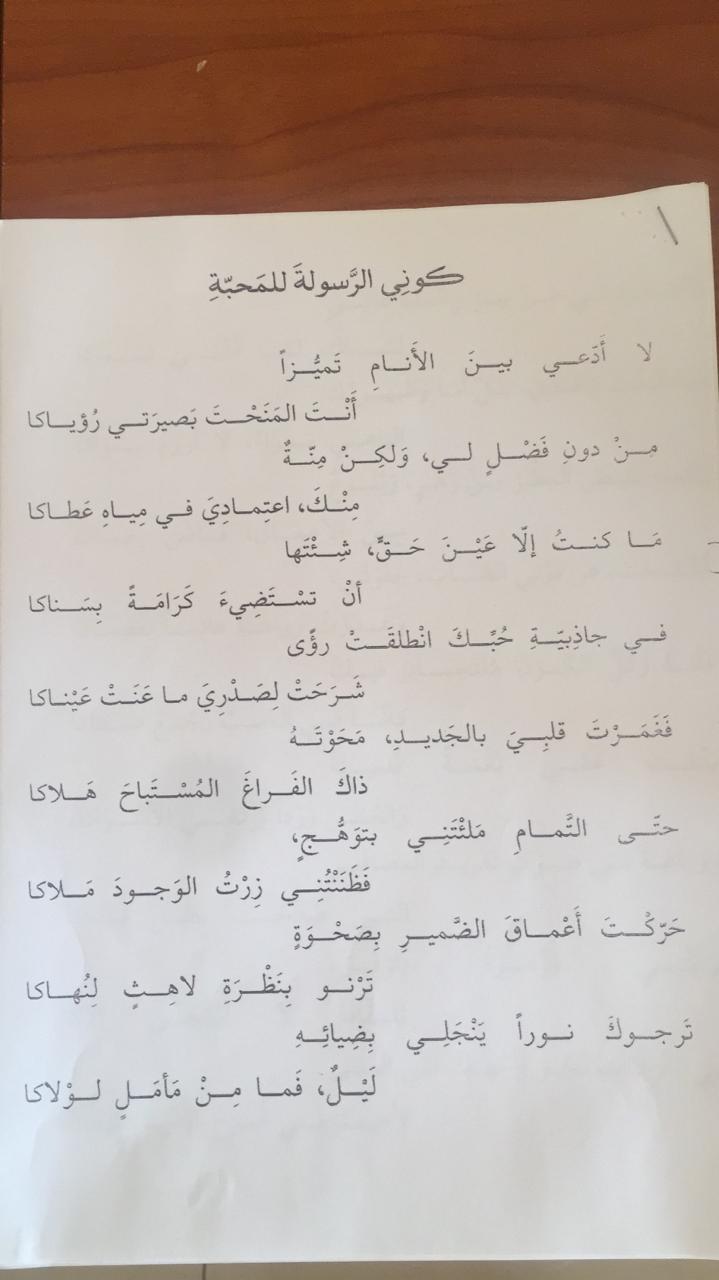 ١
كونِي الرَّسولةَ للمَحبّةِ
لا أَدّعـي بيـنَ الأَنـامِ تَميُّـزاً
أَنْـتَ المَنَحْـتَ بَصيرَتـي رُؤيـاكا
مِـنْ دونِ فَضْـلٍ لـي، وَلكِـنْ مِنّـةٌ
مِنْـكَ، اعتِمـادِيَ فـي مِيـاهِ عَطـاكا
مَـا كنـتُ إلّا عَيْـنَ حَـقٍّ، شِـئْتَها
أنْ تسْـتَضِيءَ كَرَامَـةً بِسَـناكا
فـي جاذِبيّـةِ حُبِّـكَ انْطلقَـتْ رؤًى
شَـرَحَتْ لِصَـدْرِيَ مـا عَنَـتْ عَيْنـاكا
فَغَمَـرْتَ قلبِـيَ بالجَديـدِ، مَحَوْتَـهُ
ذاكَ الفَـراغَ المُسْـتَباحَ هَـلاكا
حتّـى التَّمـامِ مَلئْتَنِـي بتوَهُّـجٍ،
فَظَنَنْتُنِـي زِرْتُ الوَجـودَ مَـلاكا
حَرّكْـتَ أَعْمـاقَ الضَّميـرِ بِصَحْـوَةٍ
تَرْنـو بِنَظْـرَةِ لاهِـثٍ لِنُهـاكا
تَرجـوكَ نـوراً يَنْجَلِـي بِضِيائِـهِ
لَيْـلٌ، فَمـا مِـنْ مَأمَـلٍ لـوْلاكا